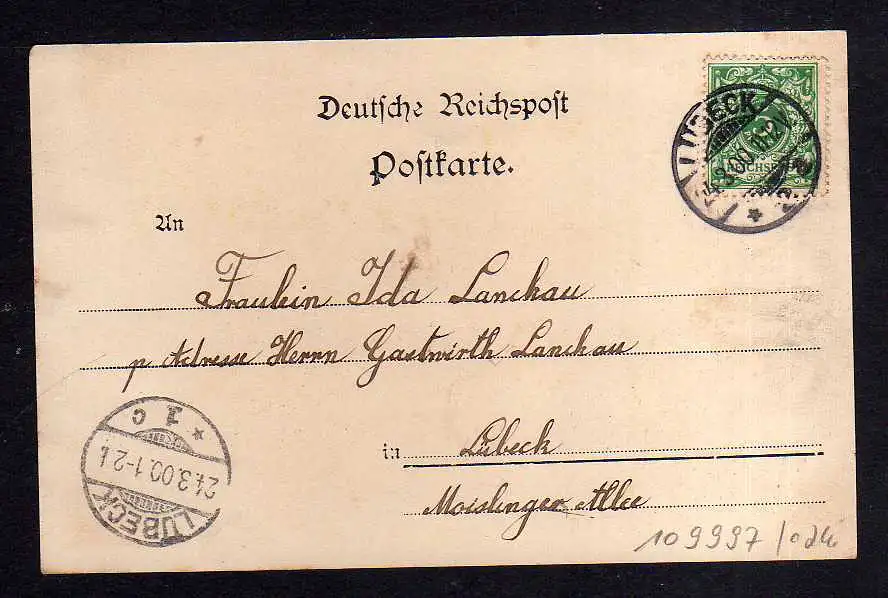 Deutsche Reichspost
Postkarte.
LÜBECK
An
Fräulein Ida Lanckau
p Adresse Herrn Gastwirth Lanckau
in Lübeck
Moislinger Allee
LÜBECK
24.3.00.1-2
* 1 c
109997